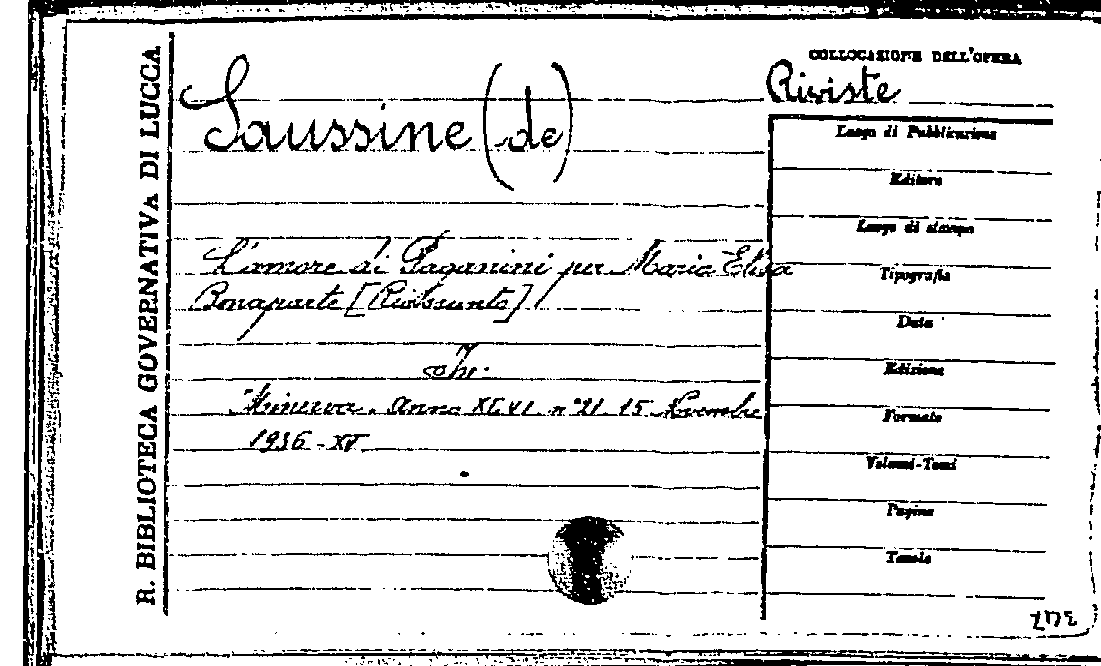 R. BIBLIOTECA GOVERNATIVA DI LUCCA
Saussine (de)
L'amore di Paganini per Maria Elisa
Bonaparte [Riassunto]
In:
Minerva. Anno XLVI n° 21 15 Novembre
1936-XV
COLLOCAZIONE DELL'OPERA
Riviste
Luogo di Pubblicazione
Editore
Luogo di stampa
Tipografia
Data
Edizione
Formato
Volumi-Tomi
Pagine
Tavole